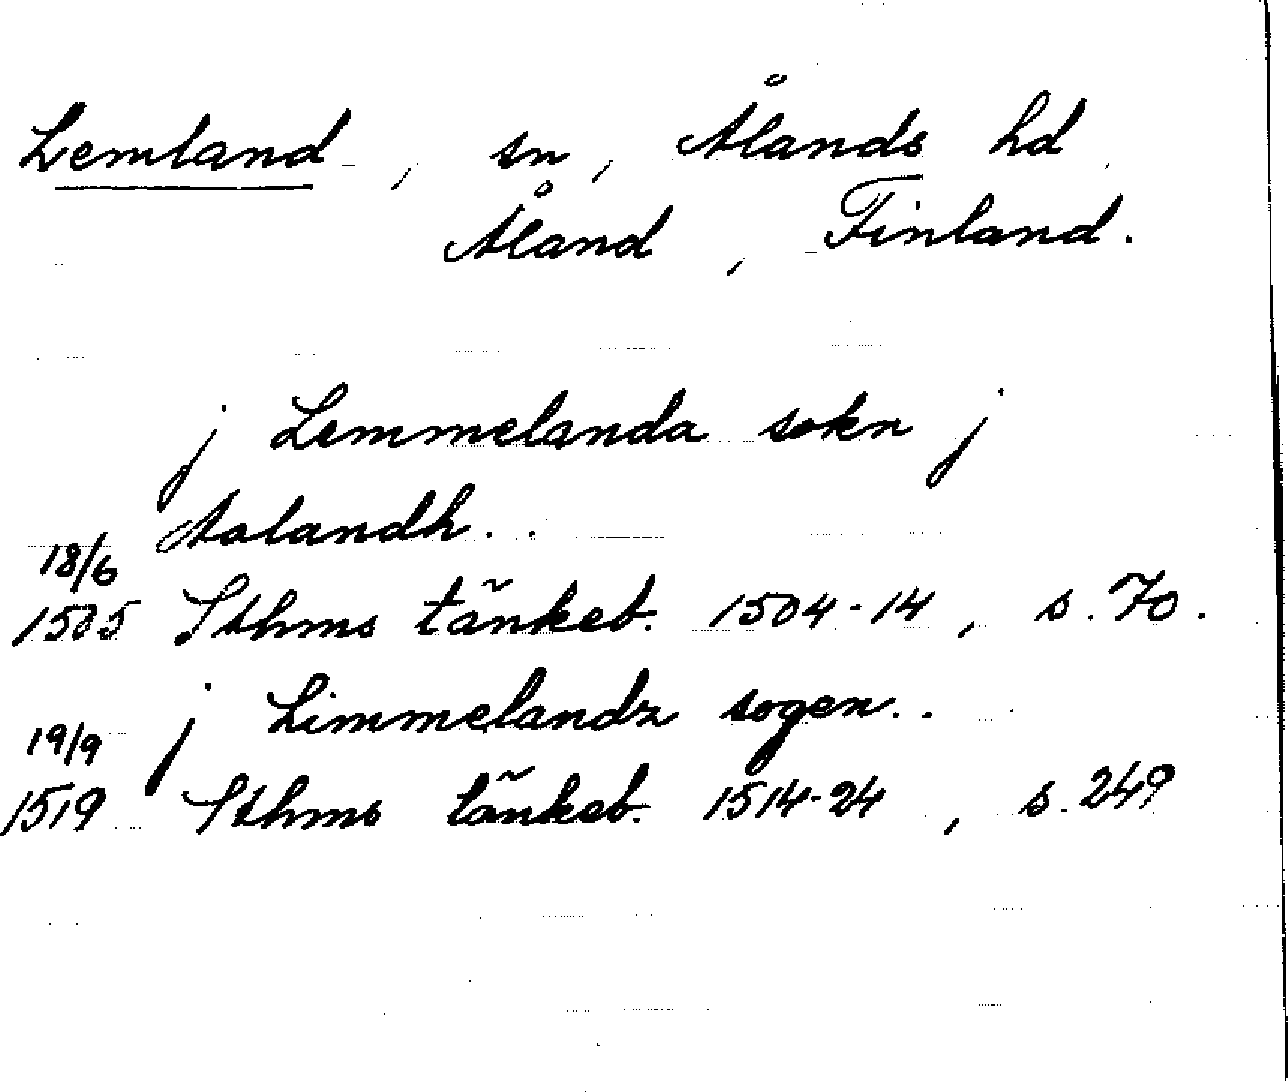 Lemland, sn, Ålands hd
Åland, Finland.
j Lemmelanda sokn j
Aolandh..
18/6
1505 Sthms tänkeb. 1504-14, s. 70.
j Limmelandz sogen..
19/9
1519 Sthms tänkeb. 1514-24, s. 249